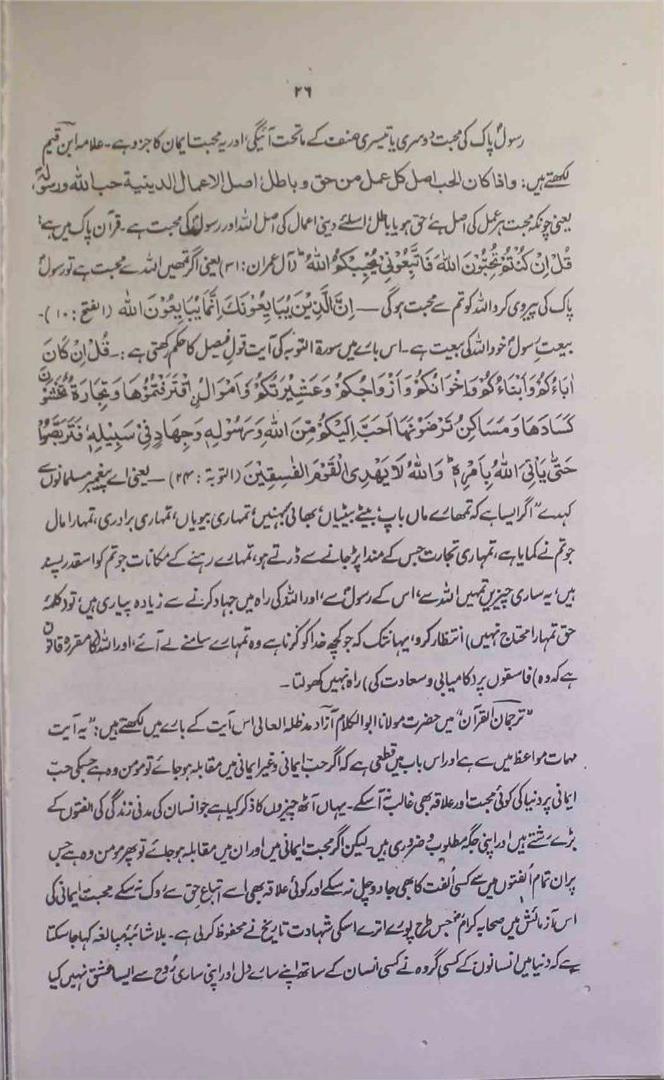 ۲۶
رسولؐ پاک کی محبت دوسری یا تیسری صنف کے ماتحت آئیگی، اور یہ محبت ایمان کا جزو ہے۔ علامہ ابن قیمؒ
لکھتے ہیں: واذا کان الحب اصل کل عمل من حق و باطل؛ اصل الاعمال الدینیة حب الله ورسوله؛
یعنی چونکہ محبت ہر عمل کی اصل ہے حق ہو یا باطل؛ اسلئے دینی اعمال کی اصل اللہ اور رسولؐ کی محبت ہے۔ قرآن پاک میں ہے:
قُلْ اِنْ كُنْتُمْ تُحِبُّوْنَ اللهَ فَاتَّبِعُوْنِيْ يُحْبِبْكُمُ اللهُ ط (آل عمران: ۳۱) یعنی اگر تمھیں اللہ سے محبت ہے تو رسولؐ
پاک کی پیروی کرو اللہ کو تم سے محبت ہوگی — اِنَّ الَّذِيْنَ يُبَايِعُوْنَكَ اِنَّمَا يُبَايِعُوْنَ اللهَ (الفتح: ۱۰)۔
بیعتِ رسولؐ خود اللہ کی بیعت ہے۔ اس بارے میں سورۃ التوبہ کی آیت قولِ فیصل کا حکم رکھتی ہے:۔ قُلْ اِنْ كَانَ
اٰبَاؤُكُمْ وَاَبْنَاؤُكُمْ وَاِخْوَانُكُمْ وَاَزْوَاجُكُمْ وَعَشِيْرَتُكُمْ وَاَمْوَالُ نِ اقْتَرَفْتُمُوْهَا وَتِجَارَةٌ تَخْشَوْنَ
كَسَادَهَا وَمَسَاكِنُ تَرْضَوْنَهَا اَحَبَّ اِلَيْكُمْ مِّنَ اللهِ وَرَسُوْلِهٖ وَجِهَادٍ فِيْ سَبِيْلِهٖ فَتَرَبَّصُوْا
حَتّٰى يَاْتِيَ اللهُ بِاَمْرِهٖ ط وَاللهُ لَا يَهْدِي الْقَوْمَ الْفٰسِقِيْنَ (التوبة: ۲۴) — یعنی اے پیغمبر مسلمانوں سے
کہدے "اگر ایسا ہے کہ تمھارے ماں باپ؛ بیٹے بیٹیاں؛ بھائی بہنیں؛ تمہاری بیویاں؛ تمہاری برادری، تمہارا مال
جو تم نے کمایا ہے، تمہاری تجارت جس کے مندا پڑ جانے سے ڈرتے ہو، تمہارے رہنے کے مکانات جو تم کو اسقدر پسند
ہیں؛ یہ ساری چیزیں تمہیں اللہ سے، اس کے رسولؐ سے، اور اللہ کی راہ میں جہاد کرنے سے زیادہ پیاری ہیں؛ تو (کلمۂ
حق تمہارا محتاج نہیں) انتظار کرو، یہانتک کہ جو کچھ خدا کو کرنا ہے وہ تمہارے سامنے لے آئے، اور اللہ کا مقررہ قانون
ہے کہ وہ) فاسقوں پر (کامیابی و سعادت کی) راہ نہیں کھولتا۔
"ترجمان القرآن" میں حضرت مولانا ابوالکلام آزاد مدظلہ العالی اس آیت کے بارے میں لکھتے ہیں: "یہ آیت
مہمات مواعظ میں سے ہے اور اس باب میں قطعی ہے کہ اگر حب ایمانی و غیر ایمانی میں مقابلہ ہو جائے تو مومن وہ ہے جسکی حبِّ
ایمانی پر دنیا کی کوئی محبت اور علاقہ بھی غالب نہ آ سکے۔ یہاں آٹھ چیزوں کا ذکر کیا ہے جو انسان کی مدنی زندگی کی الفتوں کے
بڑے رشتے ہیں اور اپنی جگہ مطلوب و ضروری ہیں۔ لیکن اگر محبت ایمانی میں اور ان میں مقابلہ ہو جائے تو پھر مومن وہ ہے جس
پر ان تمام اُلفتوں میں سے کسی اُلفت کا بھی جادو چل نہ سکے اور کوئی علاقہ بھی اسے اتباع حق سے روک نہ سکے۔ محبت ایمانی کی
اس آزمائش میں صحابہ کرامؓ جس طرح پورے اترے اسکی شہادت تاریخ نے محفوظ کرلی ہے۔ بلا شائبۂ مبالغہ کہا جا سکتا
ہے کہ دنیا میں انسانوں کے کسی گروہ نے کسی انسان کے ساتھ اپنے سارے دل اور اپنی ساری رُوح سے ایسا عشق نہیں کیا